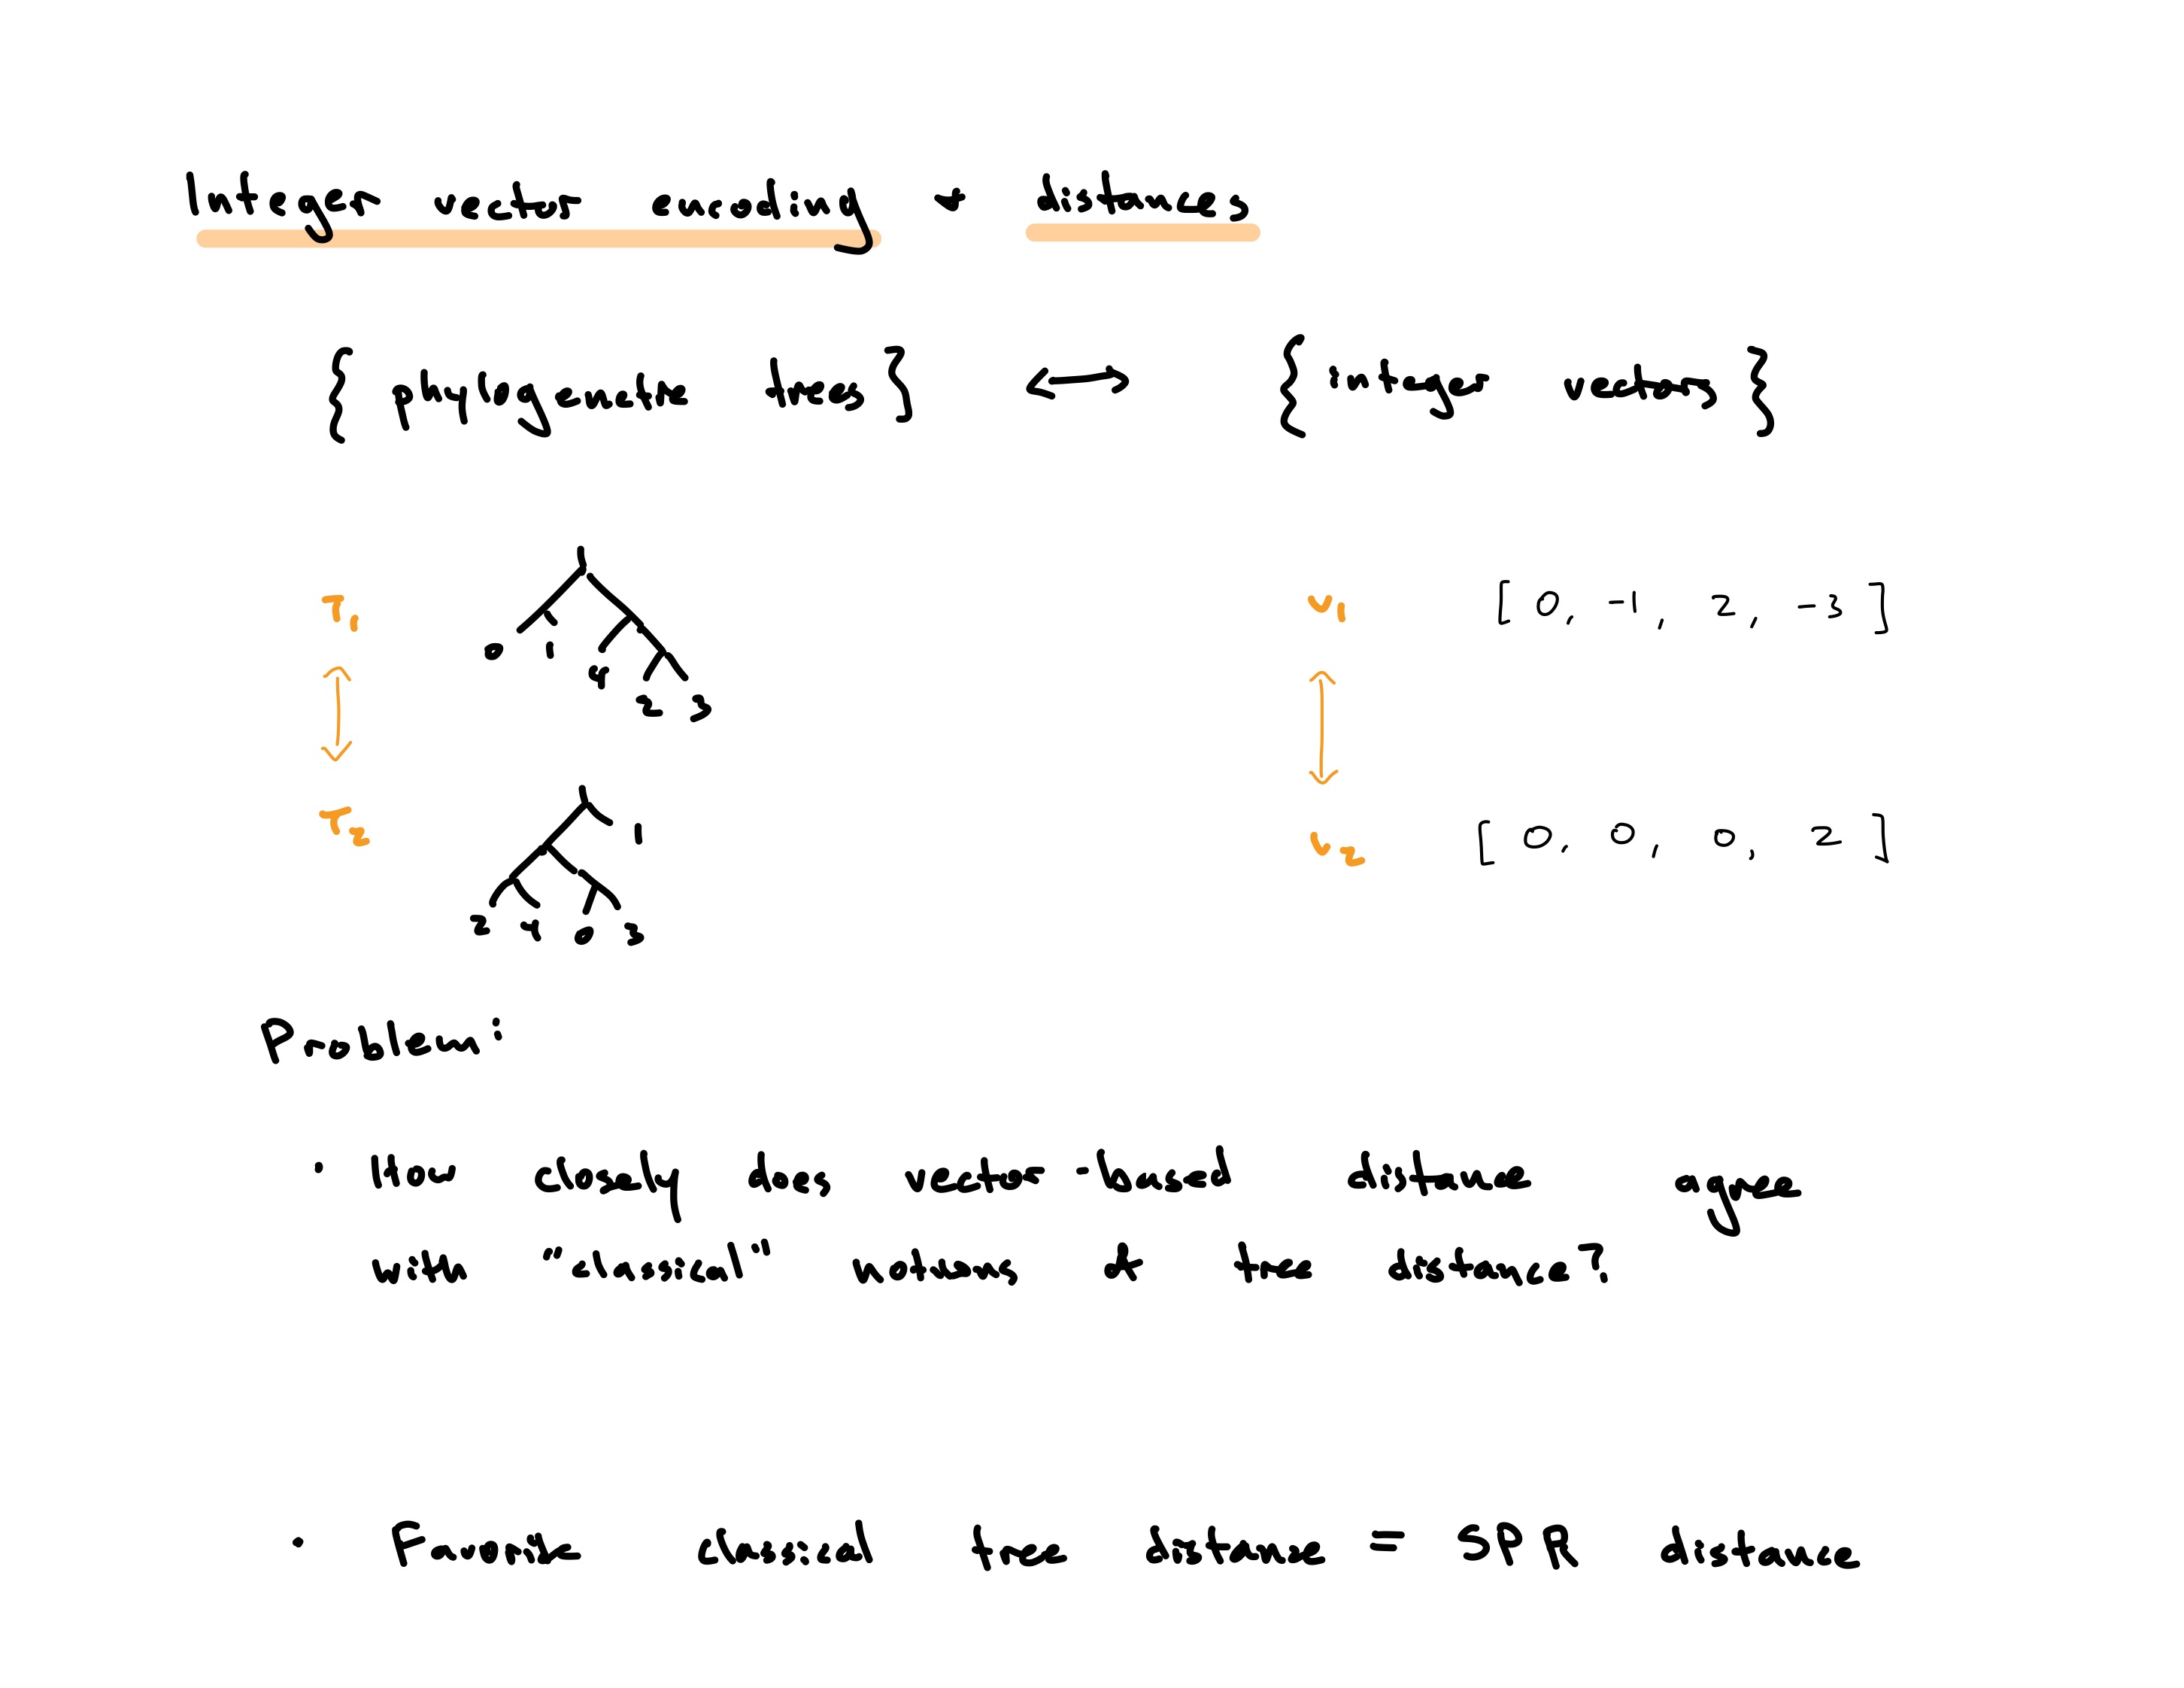 Integer vector encodings & distances
{ phylogenetic trees } ↔ { integer vectors }
T1
0 1 4 2 3
v1 [ 0, -1, 2, -3 ]
T2
1
2 4 0 3
v2 [ 0, 0, 0, 2 ]
Problem:
· How closely does vector-based distance agree
with "classical" notions of tree distance?
· Favorite classical tree distance = SPR distance